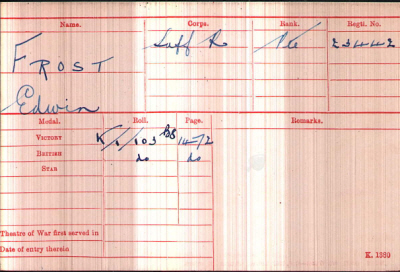 Name. Corps. Rank. Regtl. No.
FROST Suff R Pte 23442
Edwin
Medal. Roll. Page. Remarks.
VICTORY K/1/103 B8 1472
BRITISH do do
STAR
Theatre of War first served in
Date of entry therein K. 1380